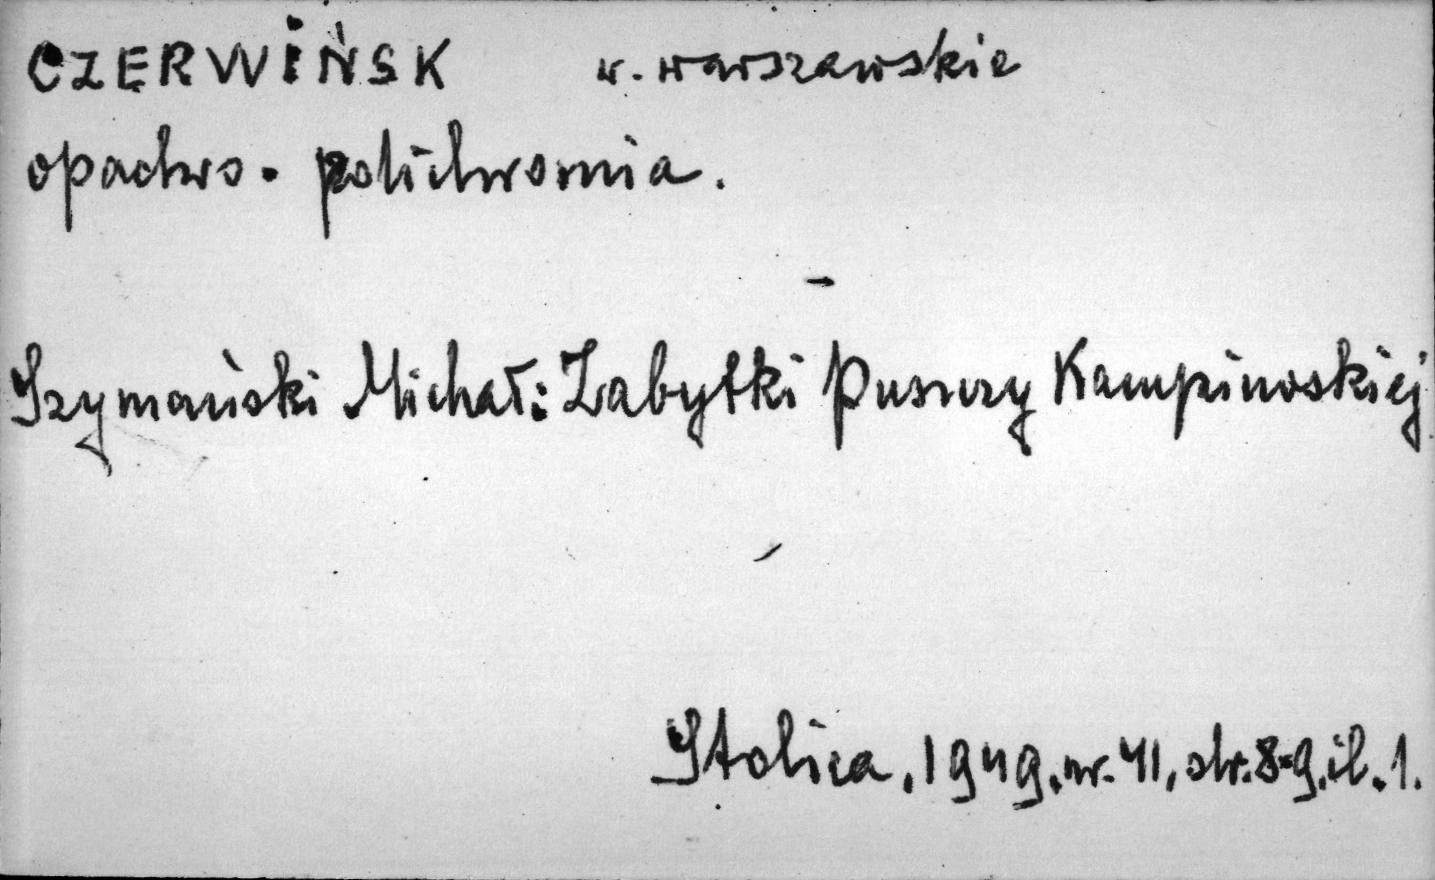 CZERWIŃSK w. warszawskie
opactwo. polichromia.
Szymański Michał: Zabytki Puszczy Kampinoskiej
Stolica, 1949. nr. 41, str. 8-9. il. 1.